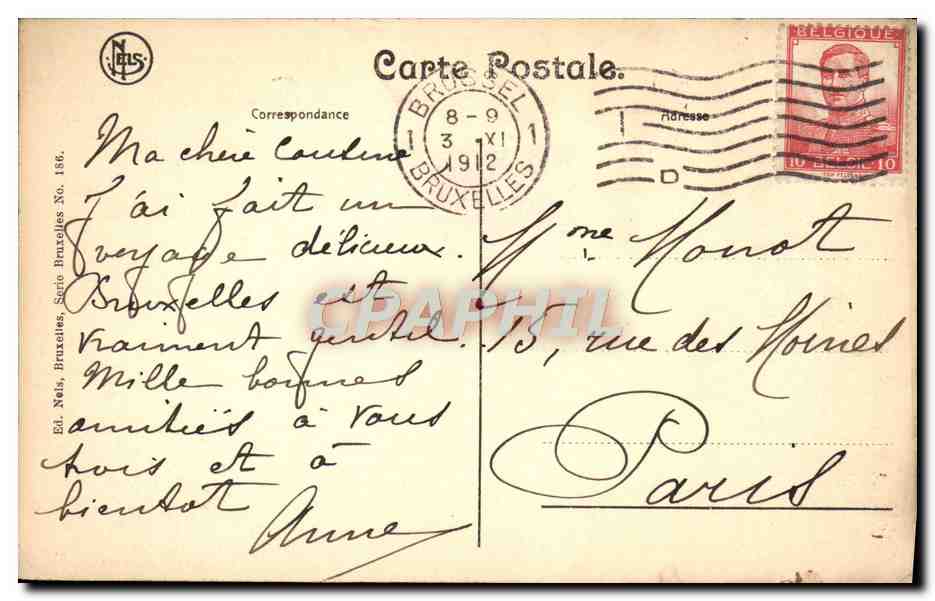 NELS
Carte Postale.
Correspondance
Adresse
BRUSSEL
8 - 9
1 3 - XI 1
1912
BRUXELLES
BELGIQUE
10 BELGIË 10
D
Ma chère Cousine
J'ai fait un
voyage délicieux.
Bruxelles est
vraiment gentil.
Mille bonnes
amitiés à vous
trois et à
bientôt
Anne
Mme Monot
15, rue des Moines
Paris
Ed. Nels, Bruxelles, Serie Bruxelles No. 186.
CPAPHIL